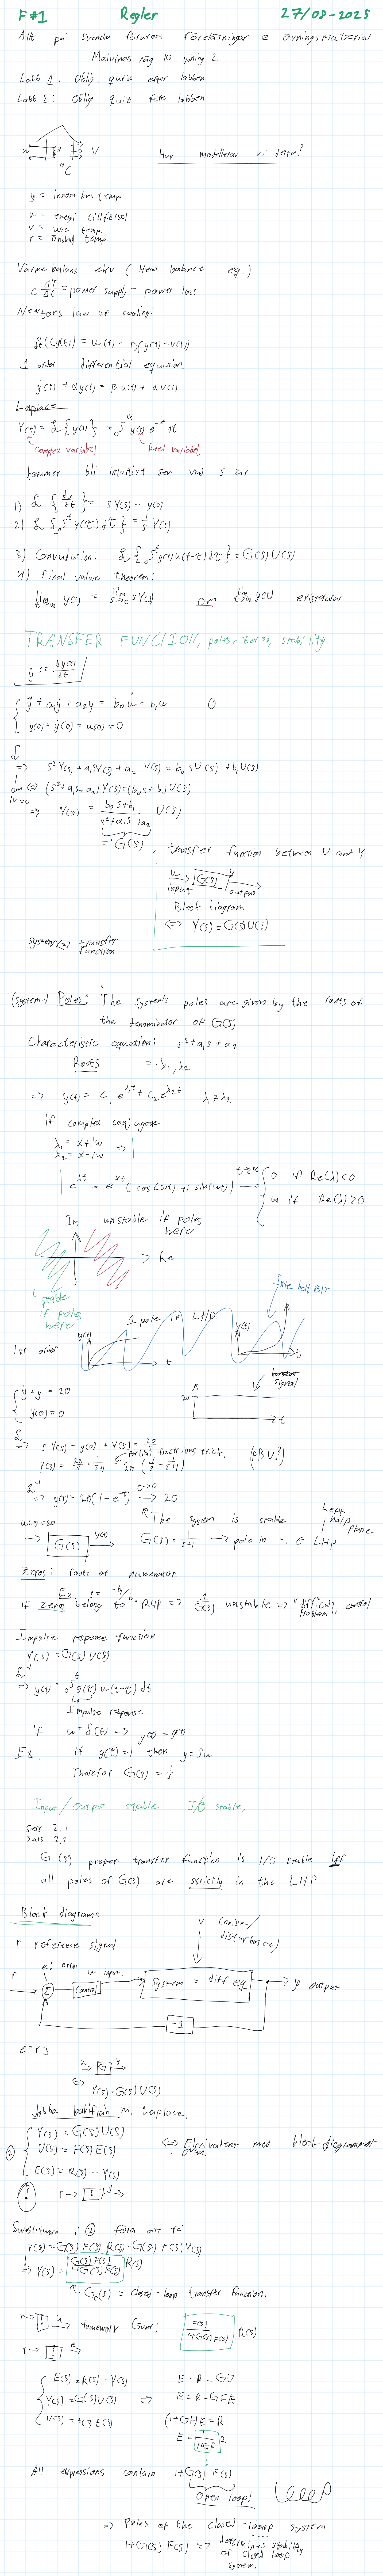 F#1 Regler 27/08-2025
Allt på svenska förutom föreläsningar & övningsmaterial
Malvinas väg 10 våning 2
Labb 1: Oblig. quiz efter labben
Labb 2: Oblig quiz före labben
u y V
°C
Hur modellerar vi detta?
y = innom hus temp
u = energi tillförsel
v = ute temp.
r = önskad temp.
Värme balans ekv (Heat balance eq.)
C ΔT/Δt = power supply - power loss
Newtons law of cooling:
d/dt (Cy(t)) = u(t) - D(y(t) - v(t))
1 order differential equation.
ẏ(t) + αy(t) = βu(t) + αv(t)
Laplace
Y(s) = ℒ{y(t)} = ₀∫^∞ y(t) e^-st dt
Complex variabel Reel variabel,
kommer bli intuitivt sen vad s är
1) ℒ{dy/dt} = sY(s) - y(0)
2) ℒ{₀∫^t y(τ)dτ} = 1/s Y(s)
3) Convulution: ℒ{₀∫^t g(τ)u(t-τ)dτ} = G(s)U(s)
4) Final value theorem:
lim t→∞ y(t) = lim s→0 sY(s) om lim t→∞ y(t) existerar
TRANSFER FUNCTION, poles, zeros, stability
ẏ := dy(t)/dt
ÿ + a₁ẏ + a₂y = b₀u̇ + b₁u ①
y(0) = ẏ(0) = u(0) = 0
ℒ => s²Y(s) + a₁sY(s) + a₂Y(s) = b₀sU(s) + b₁U(s)
om iv=0 <=> (s²+a₁s+a₂)Y(s) = (b₀s+b₁)U(s)
=> Y(s) = (b₀s+b₁)/(s²+a₁s+a₂) U(s)
=: G(s), transfer function between U and Y
u → G(s) → y
input output
Block diagram
<=> Y(s) = G(s)U(s)
system <=> transfer function
(system-) Poles: The system's poles are given by the roots of
the denominator of G(s)
Characteristic equation: s²+a₁s+a₂
Roots =: λ₁, λ₂
=> y(t) = C₁e^λ₁t + C₂e^λ₂t λ₁≠λ₂
if complex conjugate
λ₁ = x+iw =>
λ₂ = x-iw
e^λt = e^xt (cos(wt) + i sin(wt)) t→∞ → { 0 if Re(λ)<0
∞ if Re(λ)>0
Im unstable if poles here
Re
stable if poles here
1st order
1 pole in LHP
y(t) t
y(t) t
ẏ + y = 20
y(0) = 0
konstant signal
20 t
ℒ => sY(s) - y(0) + Y(s) = 20/s
Y(s) = 20/s · 1/(s+1) = partial fractions trick. 20(1/s - 1/(s+1)) (PBU?)
ℒ⁻¹ => y(t) = 20(1-e^-t) t→∞ → 20
The system is stable
u(t)=20 → G(s) → y(t) G(s) = 1/(s+1) → pole in -1 ∈ LHP
Left half plane
Zeros: roots of numerator.
Ex s = -b₁/b₀
if zeros belong to RHP => 1/G(s) unstable => "difficult control problem"
Impulse response function
Y(s) = G(s)U(s)
ℒ⁻¹ => y(t) = ₀∫^t g(τ) u(t-τ) dτ
Impulse response.
if u = δ(t) → y(t) = g(t)
Ex. if g(τ)=1 then y = ∫u
Therefor G(s) = 1/s
Input/Output stable I/O stable,
Sats 2.1
Sats 2.2
G(s) proper transfer function is I/O stable iff
all poles of G(s) are strictly in the LHP
Block diagrams
v (noise/disturbance)
r reference signal
e: error
u input.
r Σ Control system = diff eq y output
-1
e = r-y
u → G → y
<=> Y(s) = G(s)U(s)
Jobba bakifrån m. Laplace.
② Y(s) = G(s)U(s)
U(s) = F(s)E(s)
E(s) = R(s) - Y(s)
<=> Ekvivalent med blockdiagrammet ovan.
? r → ! → y
Substituera i ② förs att få
Y(s) = G(s)F(s)R(s) - G(s)F(s)Y(s)
=> Y(s) = G(s)F(s)/(1+G(s)F(s)) R(s)
Gc(s) = closed-loop transfer function.
r → ! → u Homework (svar: F(s)/(1+G(s)F(s)) R(s)
r → ! → e
E(s) = R(s) - Y(s) E = R - GU
Y(s) = G(s)U(s) => E = R - GFE
U(s) = F(s)E(s) (1+GF)E = R
E = 1/(1+GF) R
All expressions contain 1+G(s)F(s)
Open loop!
=> Poles of the closed-loop system
1+G(s)F(s) => determines stability of closed loop system.